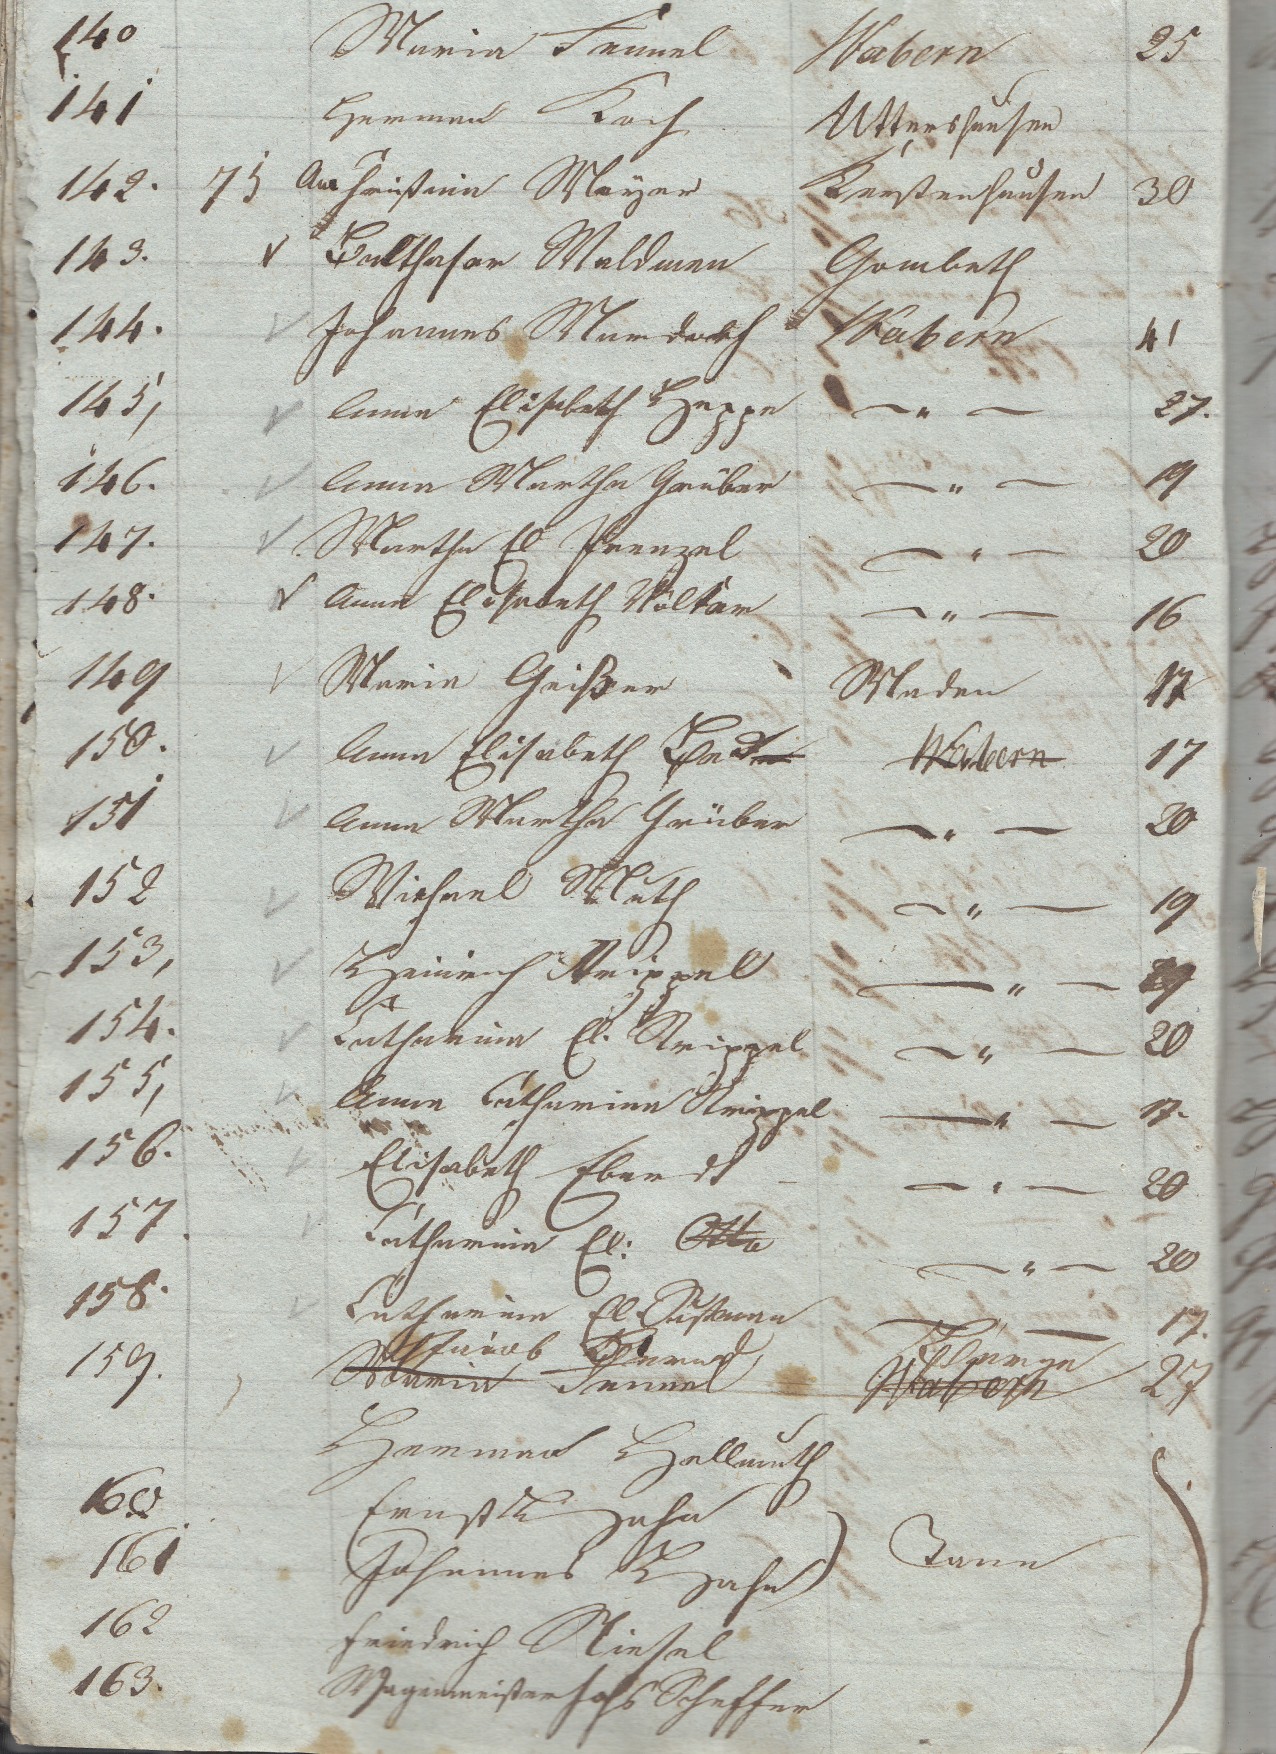 140 Maria Temmel Wabern 25
141 Herman Koch Uttershausen
142. 75 Ana Christina Meyer Kerstenhausen 30
143. Balthasar Waldman Gombeth
144. Johannes Murdorth Wabern 41
145, Anna Elisabeth Heppe — " — 27.
146. Anna Martha Grüber — " — 19
147. Martha El Frenzel — " — 20
148. Anna Elisabeth Völker — " — 16
149 Maria Geißer Maden 17
150. Anna Elisabeth Wabern 17
151 Anna Martha Grüber — " — 20
152 Michael Muth — " — 19
153, Heinrich Strippel — " — 19
154. Catharina El. Strippel — " — 20
155, Anna Catharina Strippel — " — 17.
156. Elisabeth Eberdt — " — 20
157. Catharina El: Otto — " — 20
158. Catharina El. Sußman — " — 17.
Jacob
159. Maria Temmel Wabern 27
Herman Hellmuth
160 Ernst Hahn
161 Johannes Hahn Tann
162 Friedrich Kiesel
163. Wagenmeister Johs Scheffer